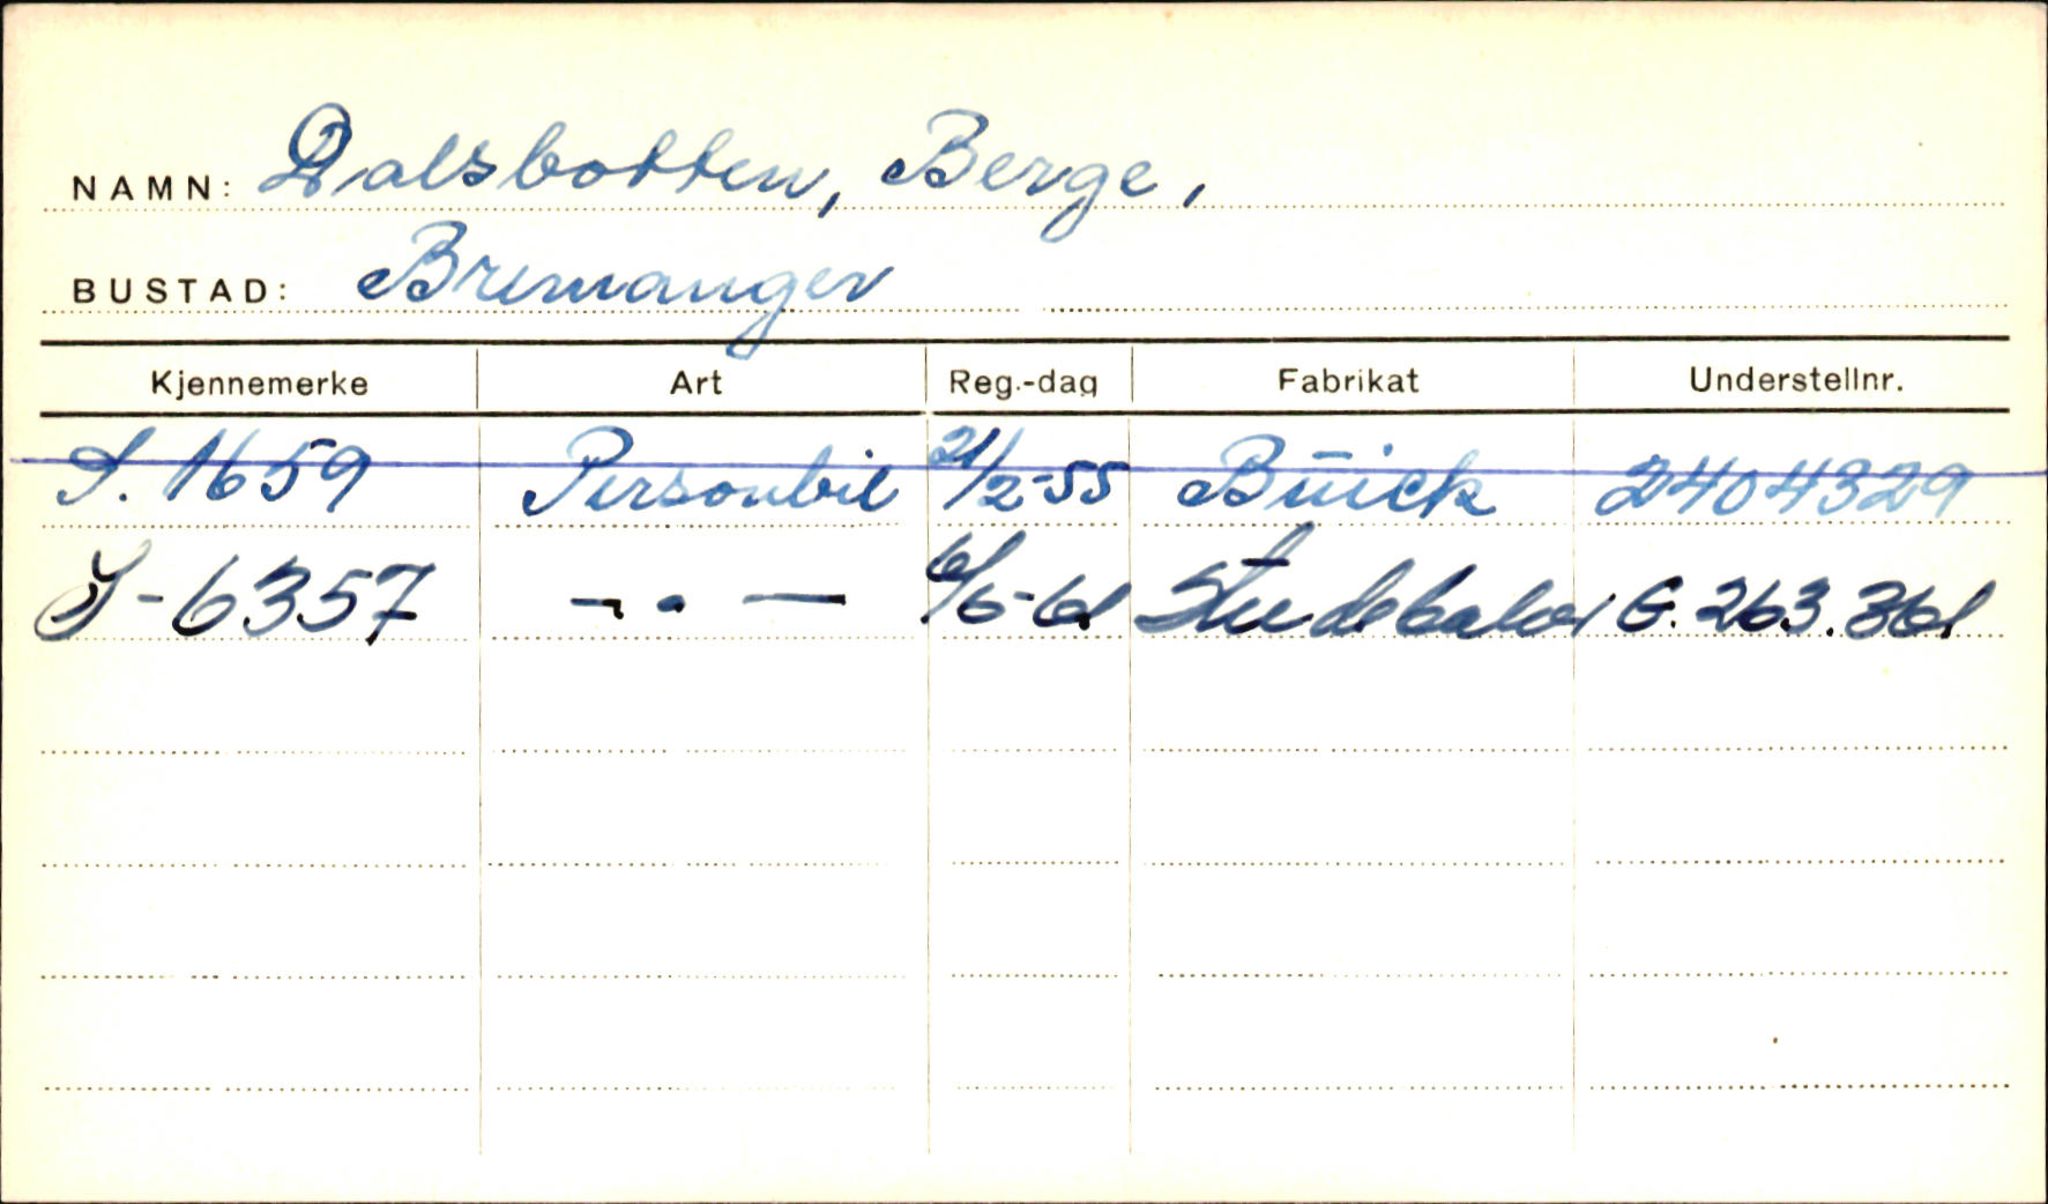 NAMN: Dalsbotten, Berge,
BUSTAD: Bremanger
Kjennemerke Art Reg.-dag Fabrikat Understellnr.
S. 1659 Personbil 21/2-55 Buick 2404329
S-6357 -〃- 6/6-61 Studebaker G. 263.361